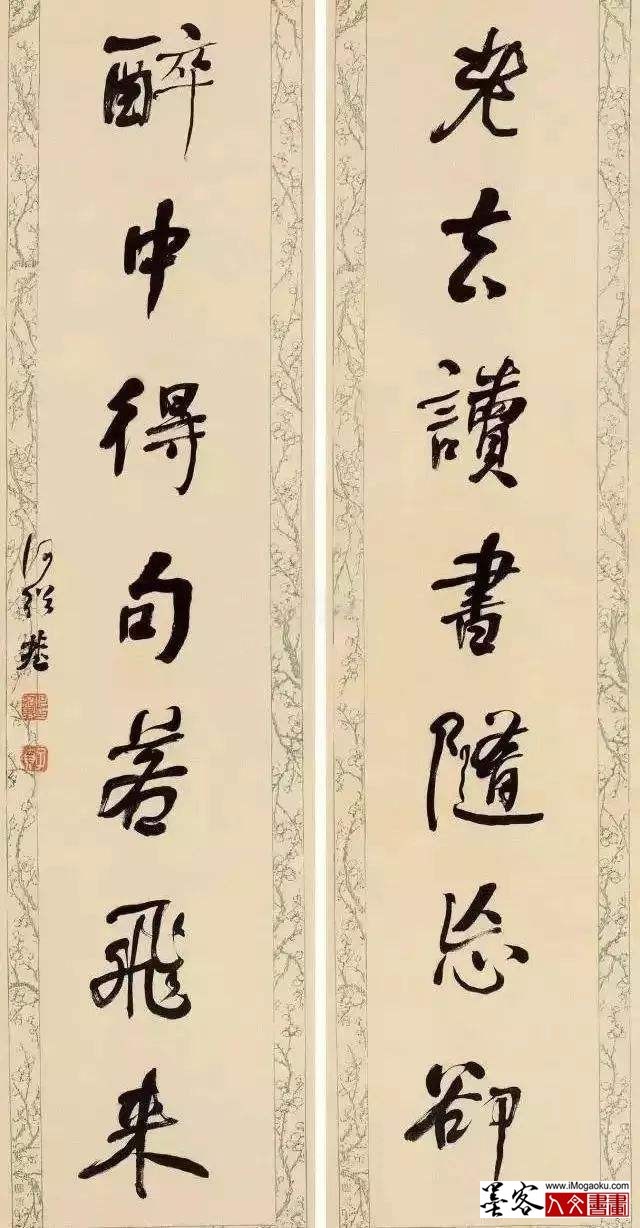 老去讀書隨忘卻
醉中得句若飛來
何紹基
www.iMogaoku.com
墨客
人文書畫